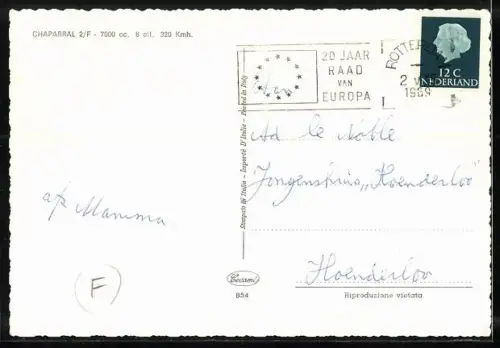 CHAPARRAL 2/F - 7000 cc. 8 cil. 320 Kmh.
20 JAAR
RAAD
VAN
EUROPA
ROTTERDAM
2
1969
12 C
NEDERLAND
Ad le Noble
Jongenshuis „Hoenderloo"
Hoenderloo
a/z Mamma
F
Stampato in Italia - Importé D'Italie - Printed in Italy
854
Riproduzione vietata